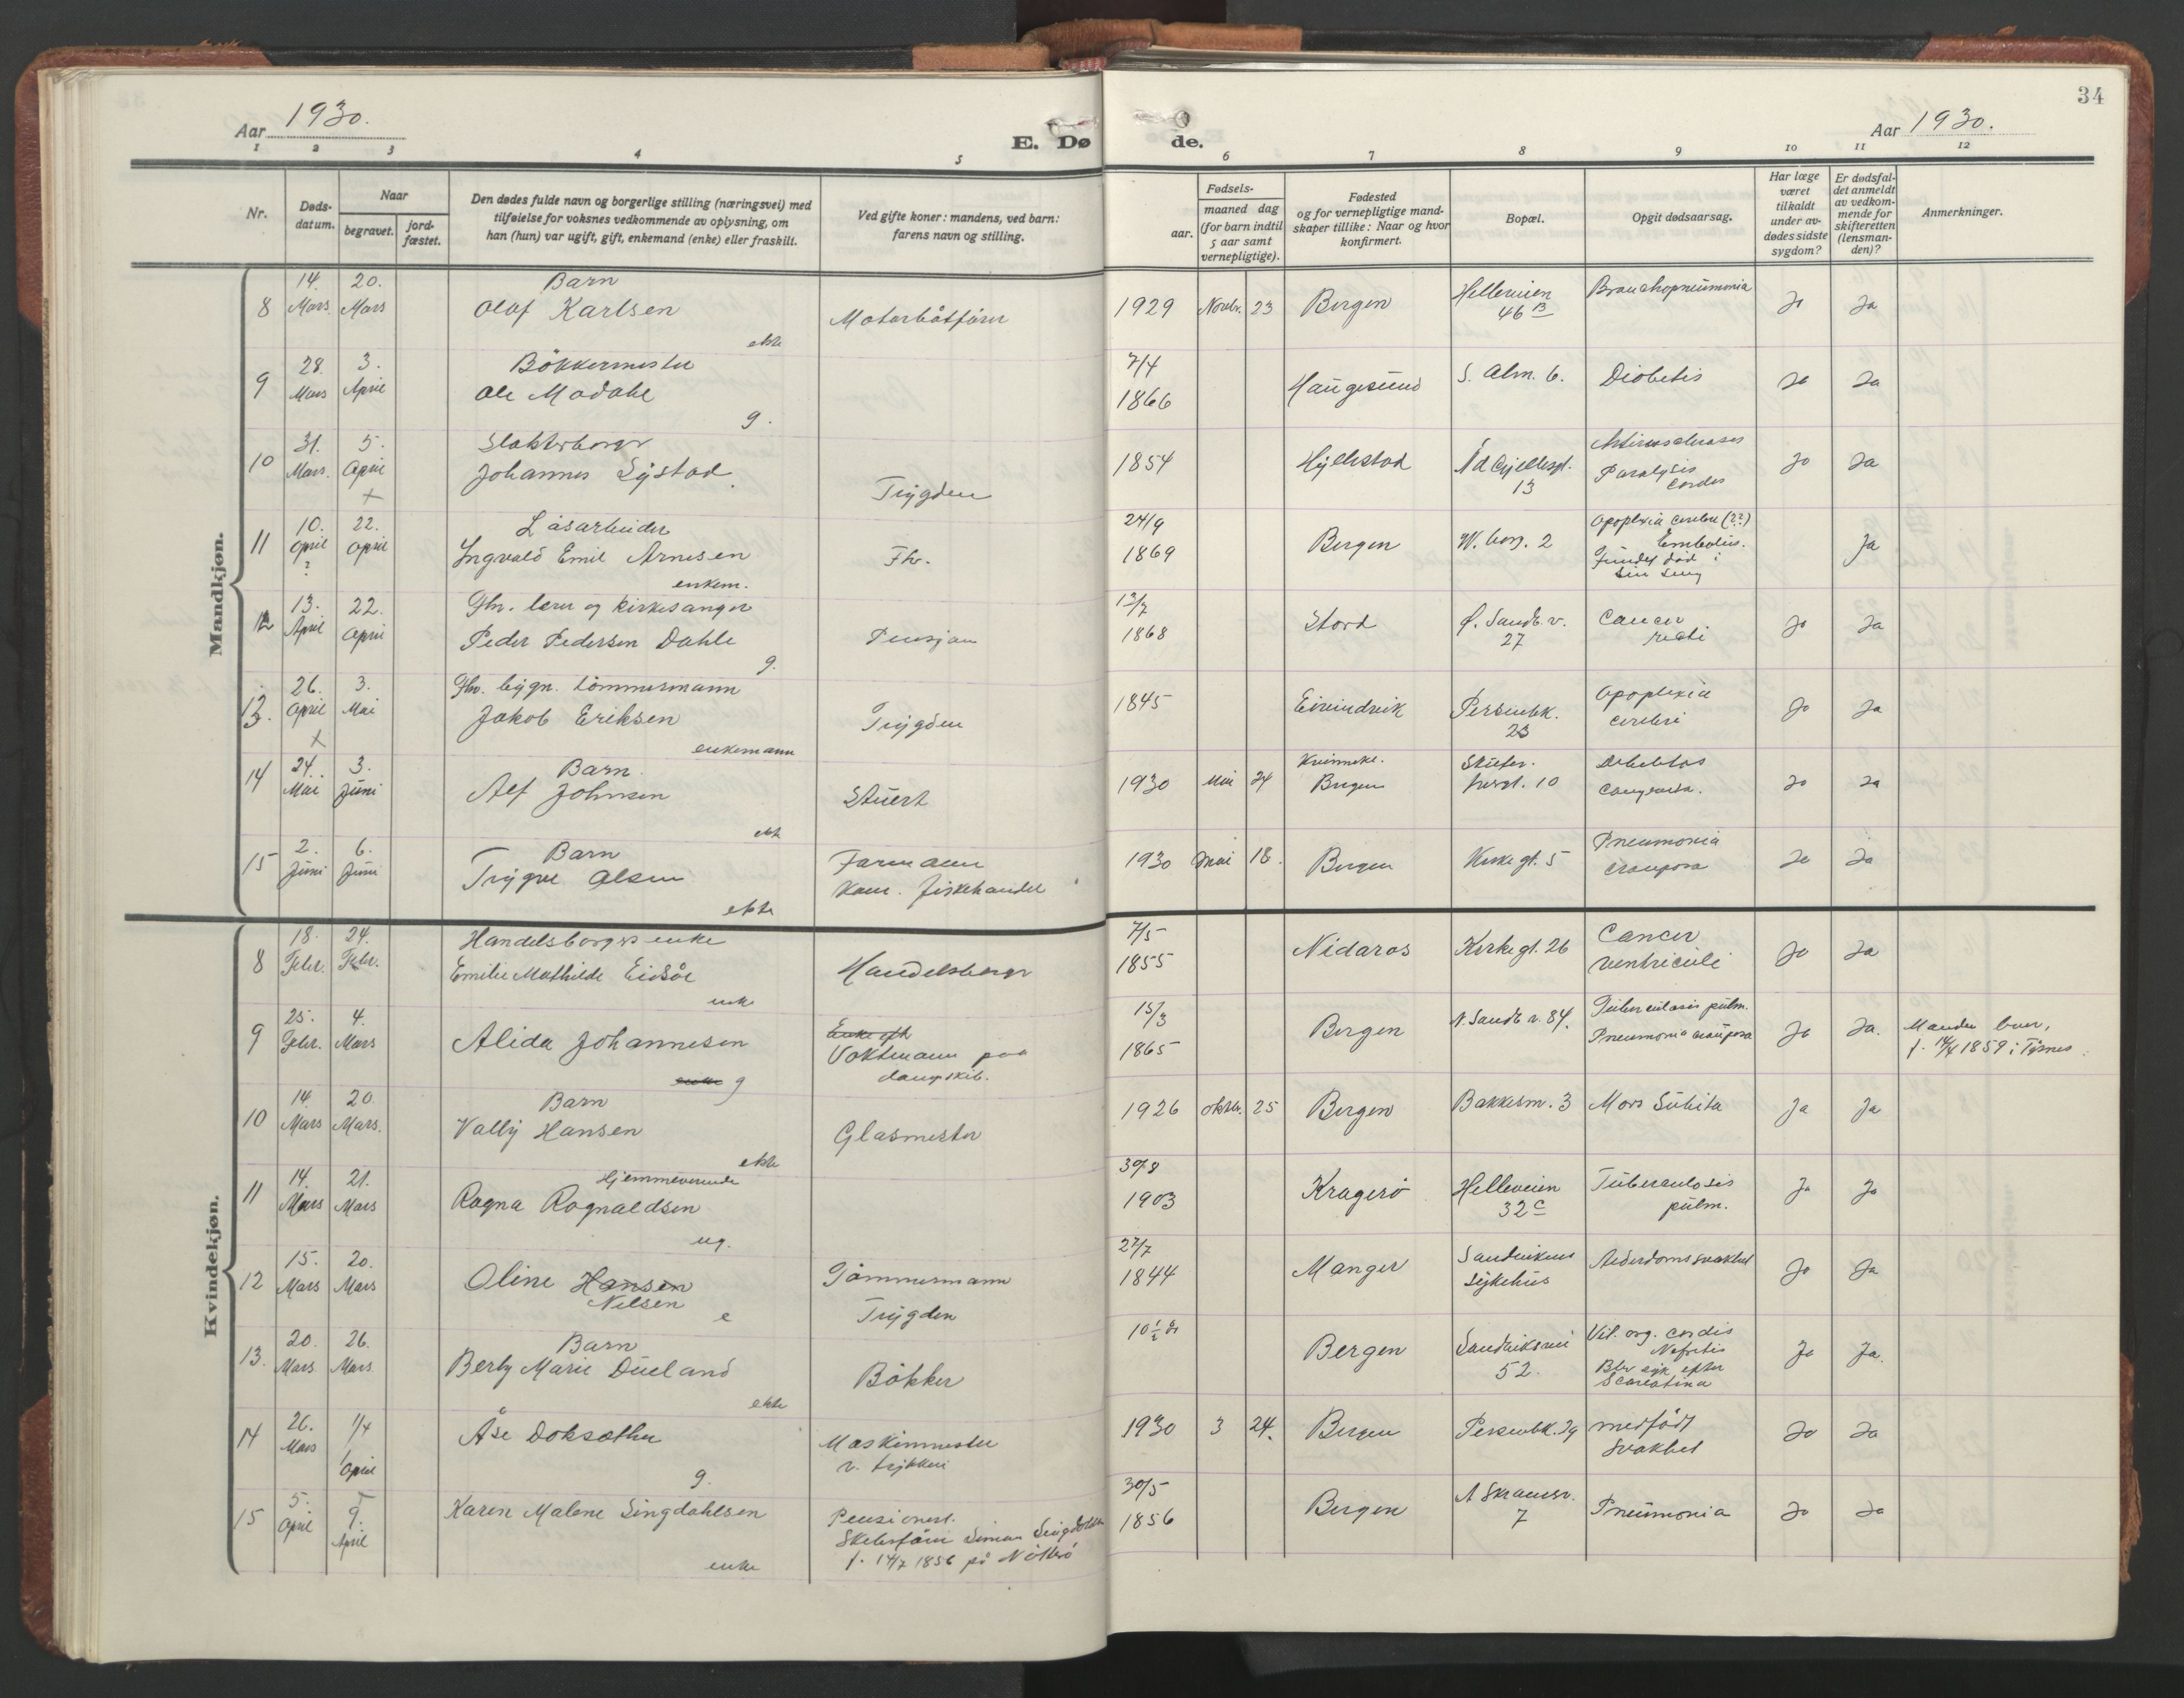 34
Aar 1930.
E. Dø de.
Aar 1930.
1 2 3 4 5 6 7 8 9 10 11 12
Nr.
Døds-
datum.
Naar
begravet.
jord-
fæstet.
Den dødes fulde navn og borgerlige stilling (næringsvei) med
tilføielse for voksnes vedkommende av oplysning, om
han (hun) var ugift, gift, enkemand (enke) eller fraskilt.
Ved gifte koner: mandens, ved barn:
farens navn og stilling.
Fødsels-
aar.
maaned dag
(for barn indtil
5 aar samt
vernepligtige).
Fødested
og for vernepligtige mand-
skaper tillike: Naar og hvor
konfirmert.
Bopæl.
Opgit dødsaarsag.
Har læge
været
tilkaldt
under av-
dødes sidste
sygdom?
Er dødsfal-
det anmeldt
av vedkom-
mende for
skifteretten
(lensman-
den)?
Anmerkninger.
Mandkjøn.
8 14. Mars 20. Mars
Barn
Olaf Karlsen
ekte
Motorbåtfører
1929 Novbr. 23 Bergen
Helleveien
46 B
Bronchopneumonia
Ja Ja
9 28. Mars 3. April
Bökkermester
Ole Madahl
g.
7/4
1866
Haugesund S. Alm. 6. Diabetis Ja Ja
10 31. Mars. 5. April
x
Slakterborger
Johannes Systad
Trygden
1854 Hyllestad
13
Paralysis
cordis
Ja Ja
11 10. April ? 22. April
Låsarbeider
Ingvald Emil Arnesen
enkem.
Fhv.
24/9
1869
Bergen W. borg. 2
Apoplexia cerebri (??)
Embolus.
Funnet död i
sin seng
Ja
12 13. April 22. April
Fhv. lærer og kirkesanger
Peder Pedersen Dahle
g.
Pensjon
13/7
1868
Stord
Ø. Sandv. v.
27
Cancer
recti
Ja Ja
13. 26. April x 3. Mai
Fhv. bygn. tömmermann
Jakob Eriksen
enkemann
Trygden
1845 Eivindvik
Persenbk.
23
Apoplexia
cerebri
Ja Ja
14 24. Mai 3. Juni
Barn
Alf Johnsen
ekt
Stuert
1930 Mai 24
Kvinnekl.
Bergen
10
Debilitas
congenita.
Ja Ja
15 2. Juni 6. Juni
Barn
Trygve Olsen
ekte
Formann
Kom. fiskehandel
1930 Mai 18. Bergen Kirkegt. 5
Pneumonia
crouposa
Ja Ja
Kvindekjøn.
8 18. Febr. 24. Febr.
Handelsborgers enke
Emilie Mathilde Eidsöe
enke
Handelsborger
7/5
1855
Nidaros Kirkegt. 26
Cancer
ventriculi
Ja Ja
9 25. Febr. 4. Mars
Alida Johannesen
enke g
Enke eft
Vaktmann paa
dampskib.
15/3
1865
Bergen N. Sandv. v. 84.
Tuberculosis pulm.
Pneumonia crouposa
Ja Ja.
Manden lever,
f. 14/4 1859 i Tysnes
10 14. Mars 20. Mars.
Barn
Vally Hansen
ekte
Glasmester
1926 oktbr. 25 Bergen Bakkesm. 3 Mors Subita Ja Ja
11 14. Mars 21. Mars
Hjemmeværende
Ragna Ragnaldsen
ug.
30/8
1903
Kragerö
Helleveien
32 C
Tuberculosis
pulm.
Ja Ja
12 15. Mars 20. Mars
Oline Hansen
Nilsen
e
Tömmermann
Trygden
27/7
1844
Manger
Sandvikens
sykehus
Alderdomssvakhet
Ja Ja
13. 20. Mars 26. Mars
Barn
Berly Marie Dueland
ekte
Bökker
10 1/2 år
Bergen
Sandviksvei
52.
Vit. org. cordis
Nefritis
Blev syk efter
Scarlatina
Ja Ja.
14 26. Mars 1/4 April
Åse Doksæther
g.
Maskinmester
v. trykkeri
1930 3 24. Bergen Persenbk. 29
medfödt
svakhet
Ja Ja
15 5. April 9. April
Karen Malene Singdahlsen
enke
Pensionert.
Simon Singdahlsen
f. 14/7 1856 på Nötterö
30/5
1856
Bergen
7
Pneumonia
Ja Ja